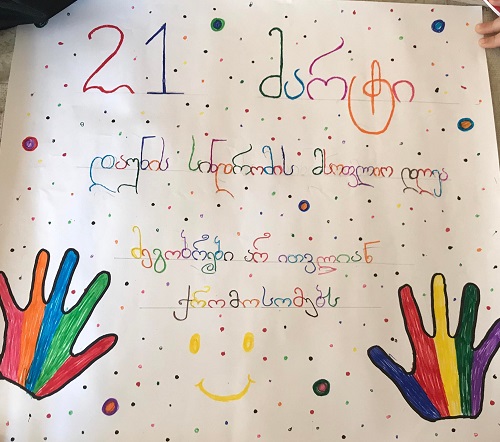 21 მარტი
დაუნის სინდრომის მსოფლიო დღე
მეგობრები არ ითვლიან
ქრომოსომებს